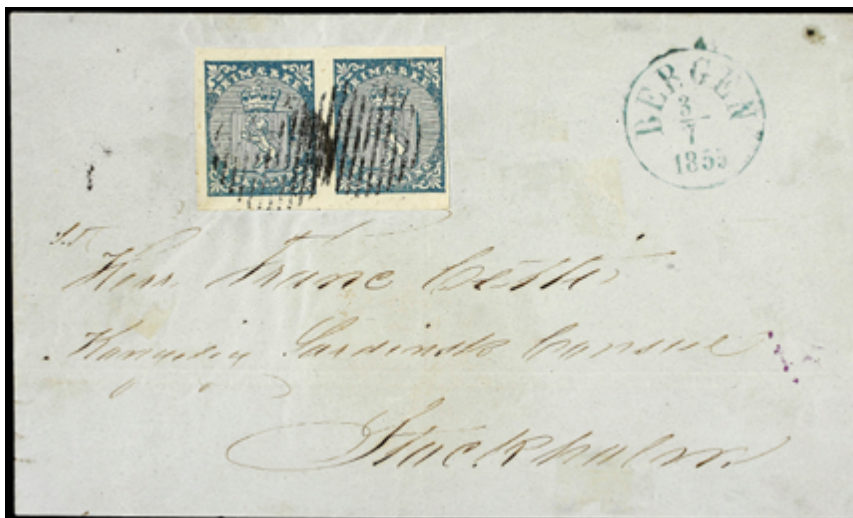 FRIMÆRKE FRIMÆRKE
BERGEN
3
7
1855
S.T.
Herr Franc
Sardinsk Consul
Stockholm